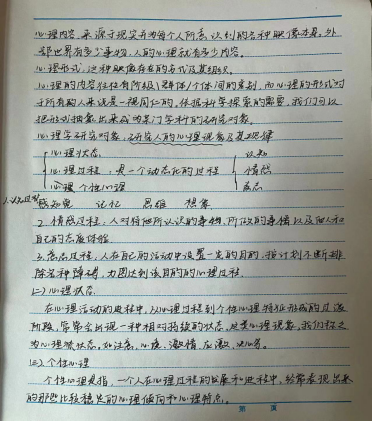 心理内容,来源于现实并为每个人所意识到的各种映像本身,外
部世界有多少事物,人的心理就有多少内容。
心理形式,这种映像存在的方式及其组织。
心理的内容往往有阶级、群体/个体间的差别,而心理的形式对
于所有的人来说是一视同仁的,依据科学探索的需要,我们可以
把形式抽象出来成为专门学科的研究对象。
心理学研究对象,研究人的心理现象及其规律
心理状态 认知
心理过程,是一个动态化的过程 情感
心理个性心理 意志
1.认知过程 感知觉 记忆 思维 想象
2.情感过程:人对待他所认识的事物,所做的事情以及他人和
自己的态度体验
3.意志过程,人在自己的活动中设置一定的目的,按计划不断排
除各种障碍,力图达到该目的的心理过程。
(二)心理状态
在心理活动的进程中,从心理过程到个性心理特征形成的过渡
阶段,常常会出现一种相对持续的状态,这类心理现象,我们称之
为心理状态。如注意,心境,激情,应激,
(三)个性心理
个性心理是指,一个人在心理过程的发展和进程中,经常表现出来
的那些比较稳定的心理倾向和心理特点。
第 页